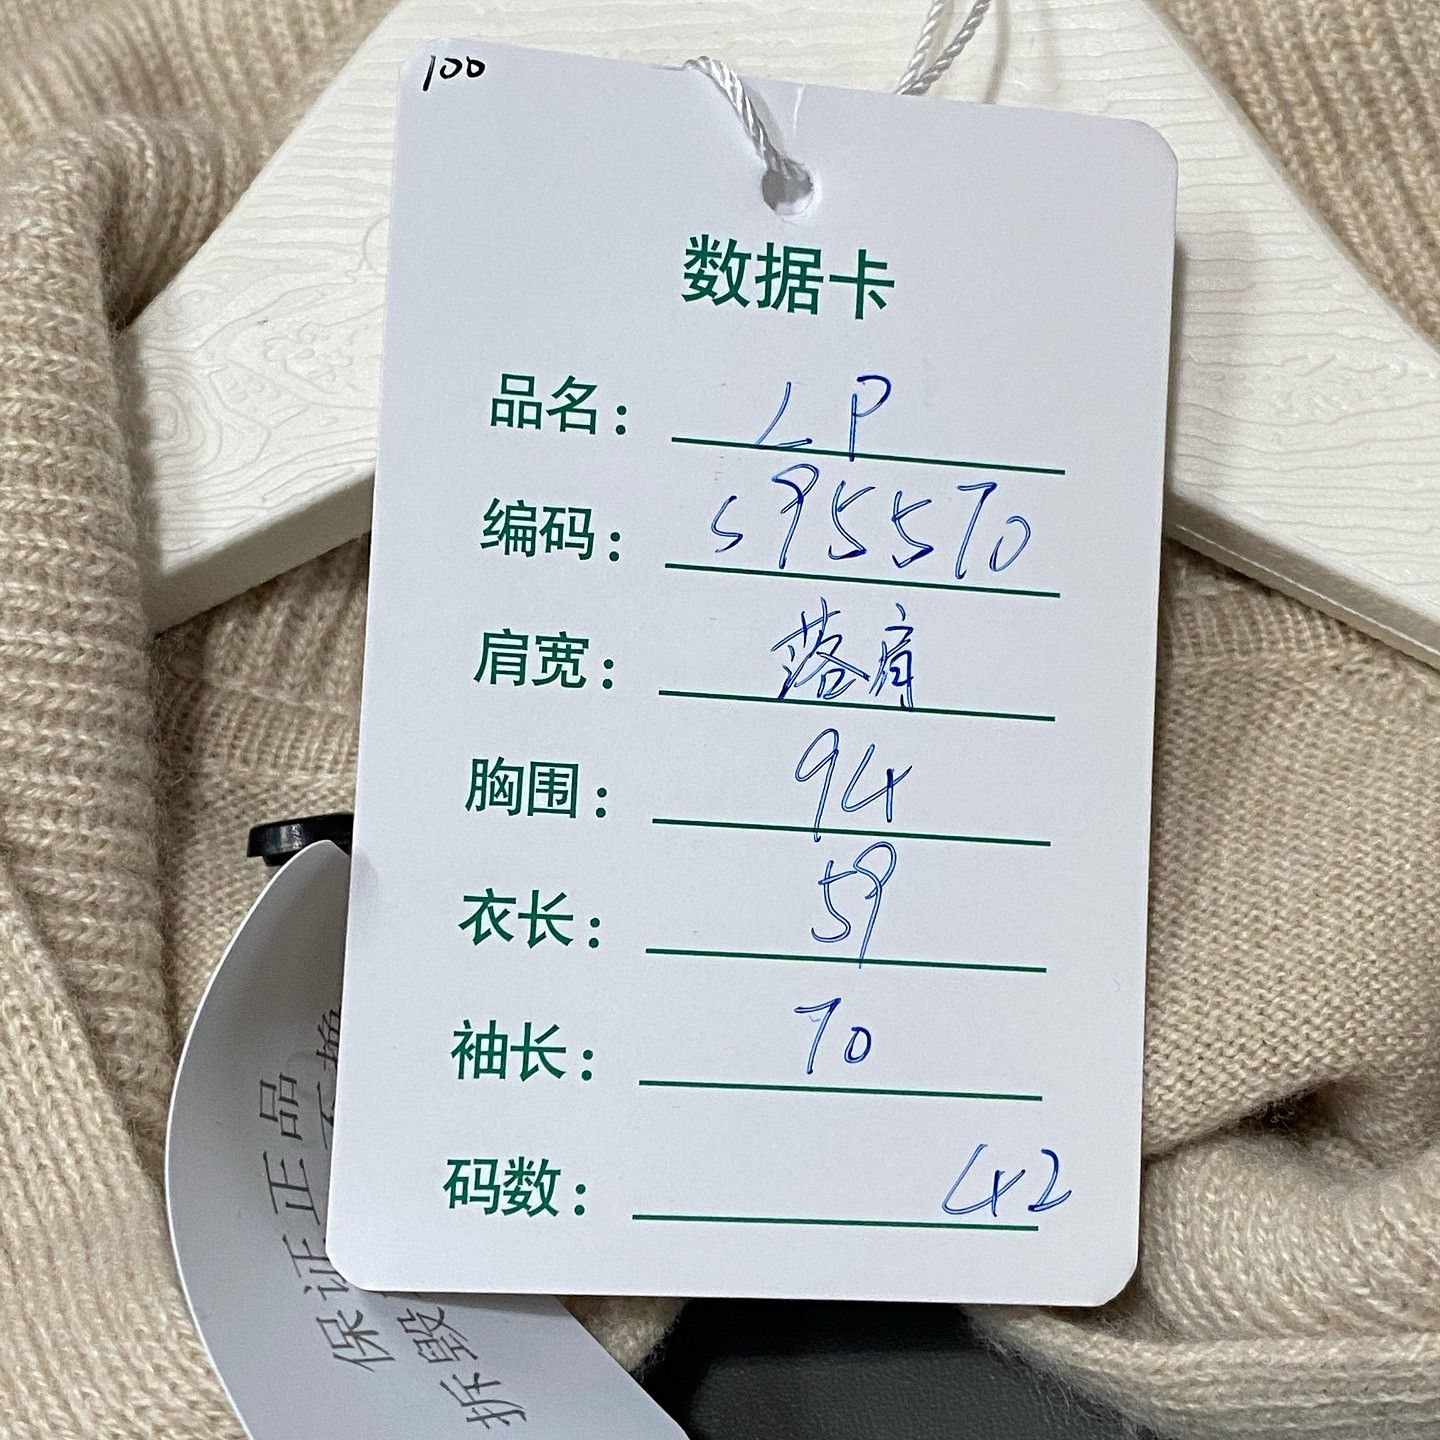 100
数据卡
品名: LP
编码: S95570
肩宽: 落肩
胸围: 94
衣长: 59
袖长: 70
码数: 42
保证正品
拆毁不换